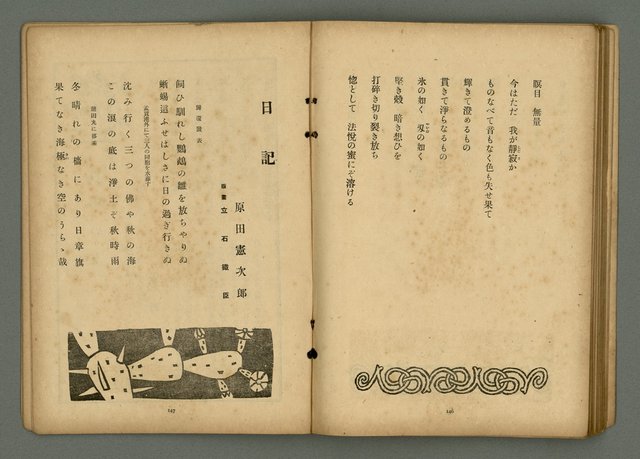 瞑目 無量
今はただ 我が靜寂か
ものなべて音もなく色も失せ果て
輝きて澄めるもの
貫きて淨らなるもの
氷の如く 刄の如く
堅き殼 暗き想ひを
打碎き切り裂き放ち
惚として 法悅の蜜にぞ溶ける
146
日記
原田憲次郎
立石鐵臣
歸還發表
飼ひ馴れし鸚鵡の雛を放ちやりぬ
蜥蜴這ふせはしさに日の過ぎ行きぬ
沈み行く三つの佛や秋の海
この浪の底は淨土ぞ秋時雨
冬晴れの檣にあり日章旗
果てなき海極なき空のうらゝ哉
147